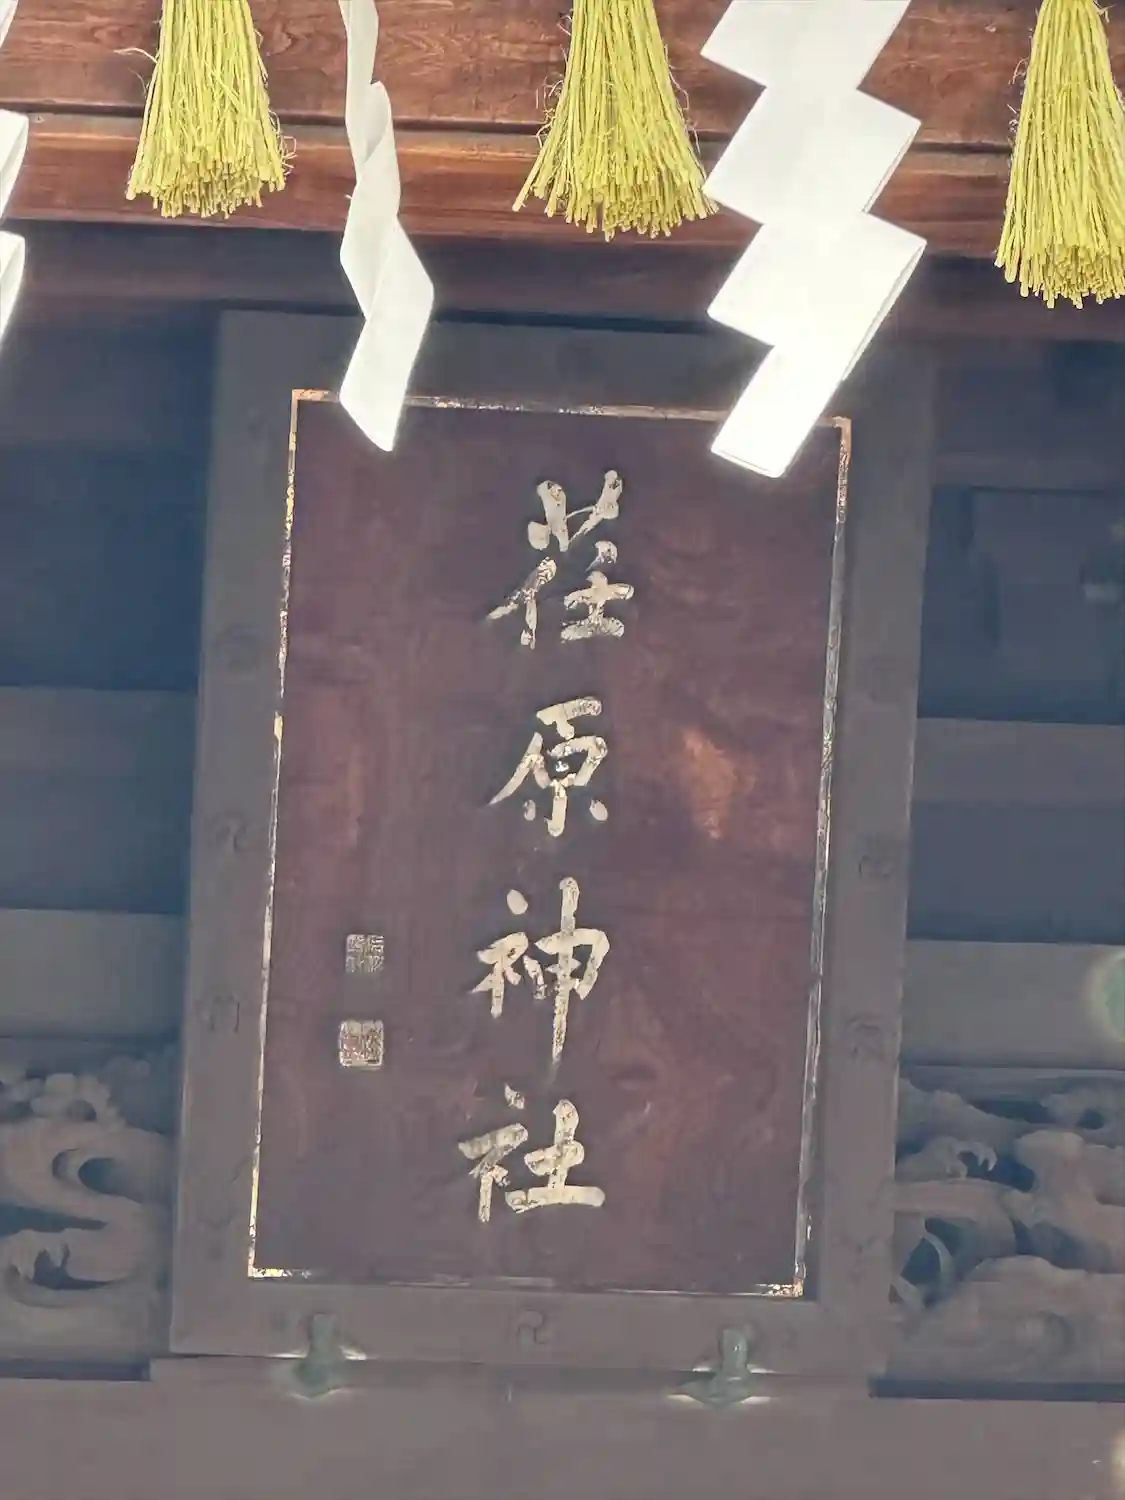 荏原神社